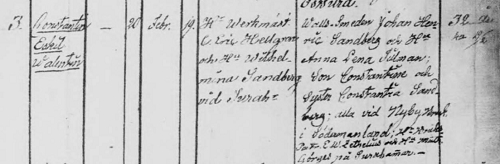 3. Constantin
Eskil
Valentin
20 Febr. 19.
Hr Werkmäst.
C. Eric Hellgren
och Hr Wilhel-
mina Sandberg
vid Surah:
Walls-Smeden Johan Hen-
ric Sandberg och Hr
Anna Lena
Son Constantine och
Syster Constantia Sand-
berg; alla vid Nyby Bruk
i Södermanland; Hr
C. W. Zethelius och Hr
på Surahamar.
32